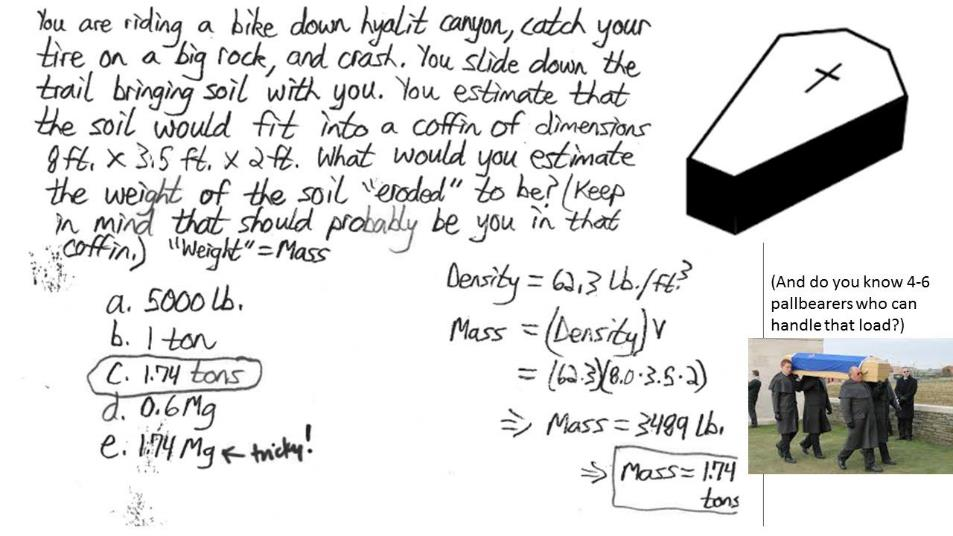 You are riding a bike down hyalit canyon, catch your
tire on a big rock, and crash. You slide down the
trail bringing soil with you. You estimate that
the soil would fit into a coffin of dimensions
8ft. x 3.5 ft. x 2ft. What would you estimate
the weight of the soil "eroded" to be? (Keep
in mind that should probably be you in that
coffin.) "Weight" = Mass
a. 5000 lb.
b. 1 ton
c. 1.74 tons
d. 0.6 Mg
e. 1.74 Mg ← tricky!
Density = 62.3 lb./ft.³
Mass = (Density) V
= (62.3)(8.0·3.5·2)
⇒ Mass = 3489 lb.
⇒ Mass = 1.74
tons
(And do you know 4-6
pallbearers who can
handle that load?)